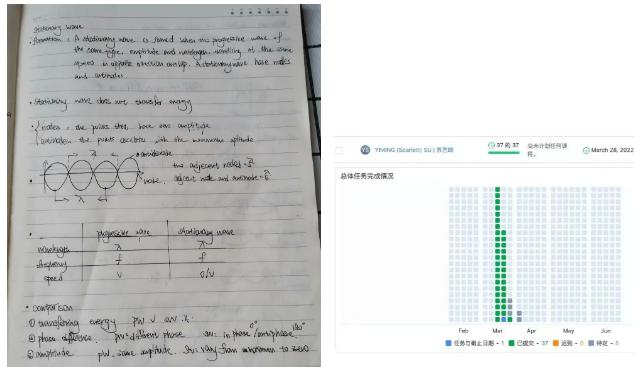 stationary wave
• formation: A stationary wave is formed when two progressive wave of
the same type, amplitude and wavelength travelling at the same
speed in opposite direction overlap. A stationary wave have nodes
and antinodes.
• stationary wave does not transfer energy
nodes: the points that have zero amplitude
antinodes: the points oscillate with the maximum amplitude
λ
antinode
two adjacent nodes =
node
adjacent node and antinode =
λ
progressive wave
stationary wave
wavelength λ λ
frequency f f
speed v 0/v
• comparison
① transferring energy pw √ sw ×
② phase difference pw: different phase sw: in phase 0° / antiphase 180°
③ amplitude pw: same amplitude sw: vary from maximum to zero
YS YIMING (Scarlett) SU |
37 的 37
尚未计划任何课程。
March 28, 2022
总体任务完成情况
Feb Mar Apr May Jun
任务与截止日期 - 1 已提交 - 37 迟到 - 0 待定 - 5